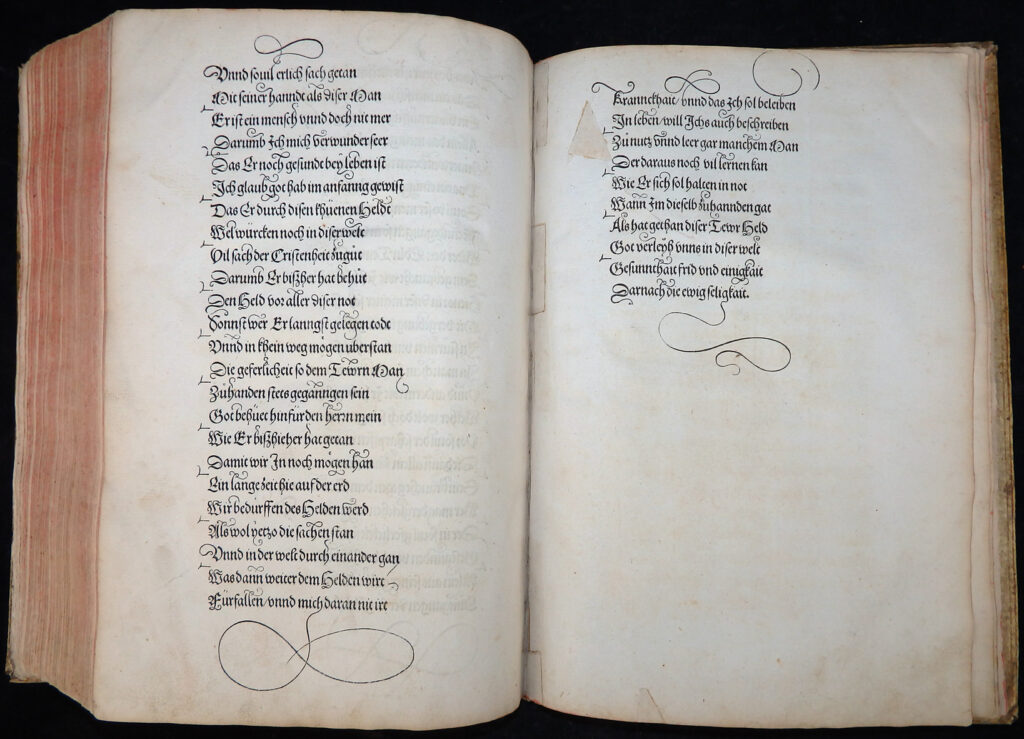 Vnnd souil erlich sach getan
Mit seiner hanndt als diser Man
Er ist ein mensch vnnd doch nit mer
Darumb Ich mich verwunder seer
Das Er noch gesundt bey leben ist
Ich glaub got hab im anfanng gewist
Das Er durch disen khüenen Heldt
Wel würcken noch in diser welt
Vil sach der Cristenheit zu gůt
Darumb Er bißher hat behůt
Den Held vor aller diser not
Sonnst wer Er lanngst gelegen todt
Vnnd in khein weg mögen uberstan
Die geferlicheit so dem Tewrn Man
Zůhanden stets geganngen sein
Got behüet hinfür den herrn mein
Wie Er bißhieher hat getan
Damit wir In noch mögen han
Ein lange zeit hie auf der erd
Wir bedurffen des Helden werd
Als wol yetzo die sachen stan
Vnnd in der welt durch einander gan
Was dann weiter dem Helden wirt
Fürfallen / vnnd mich daran nit irt
Kranckhait / vnnd das Ich sol beleiben
In leben / will Ichs auch beschreiben
Zu nutz vnnd leer gar manchem Man
Der daraus noch vil lernen kan
Wie Er sich sol halten in not
Wann In dieselb zu hannden gat
Als hat gethan diser Tewr Held
Got verleyh vnns in diser welt
Gesunnthait frid vnd einigkait
Darnach die ewig seligkait.